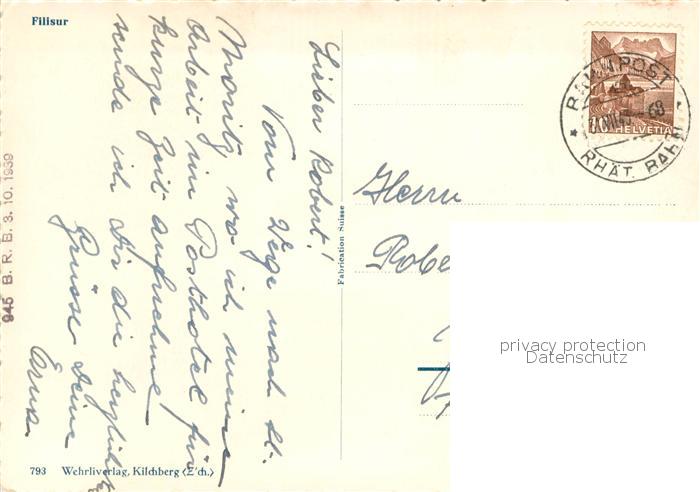 Filisur
Lieber Robert!
Vom Wege nach St.
Moritz, wo ich meine
Arbeit im Posthotel für
kurze Zeit aufnehme
sende ich Dir die herzlichst
Grüsse Deine
Erna.
945 B. R. B. 3. 10. 1939
Fabrication Suisse
793 Wehrliverlag, Kilchberg (Z'ch.)
BAHNPOST
RHÄT. BAHN
10 HELVETIA
Herrn
Robe
privacy protection
Datenschutz